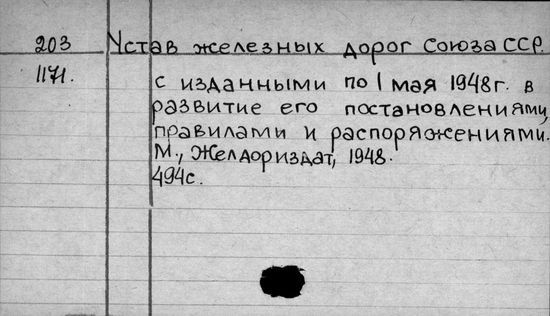 203 Устав железных дорог Союза ССР.
1171. с изданными по 1 мая 1948г. в
развитие его постановлениями,
правилами и распоряжениями.
М., Желдориздат, 1948.
494с.